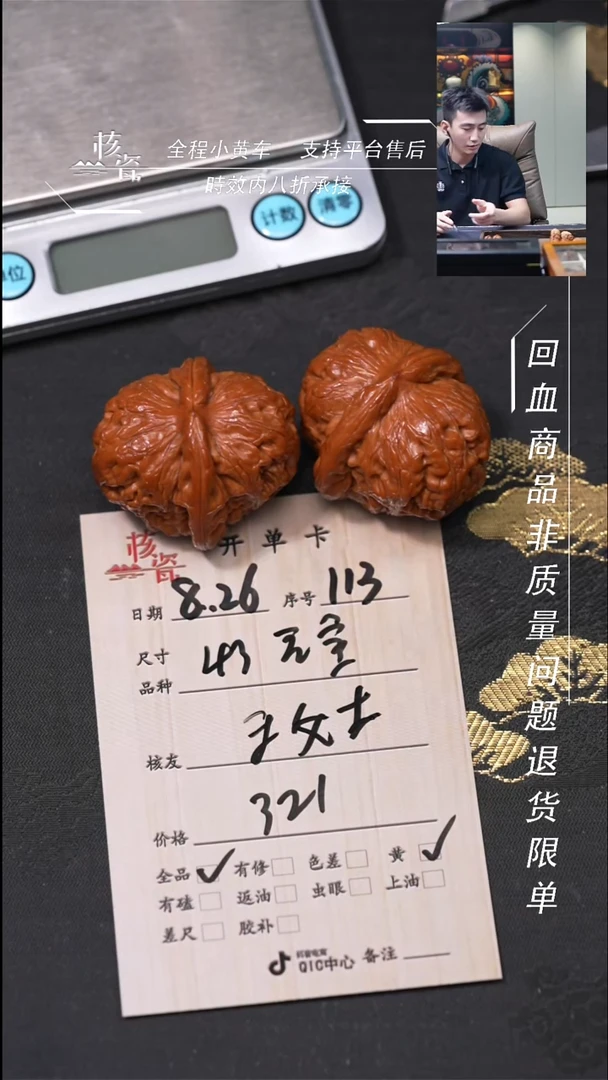 核瓷
全程小黄车 支持平台售后
時效内八折承接
计数
清零
单位
回血商品非质量问题退货限单
核瓷
开单卡
日期 8.26 序号 113
尺寸
品种 43
核友 王女士
价格 321
全品 有修 色差 黄
有磕 返油 虫眼 上油
差尺 胶补
抖音电商
QIC中心 备注